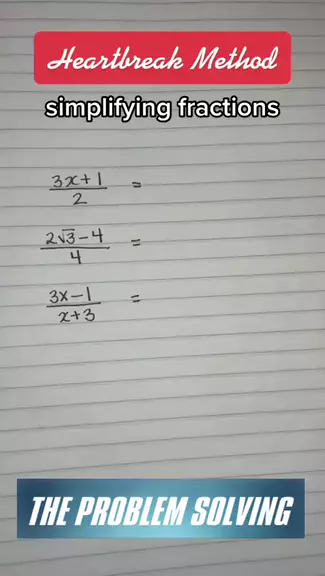 Heartbreak Method
simplifying fractions
3x+1
2 =
2√3-4
4 =
3x-1
x+3 =
THE PROBLEM SOLVING